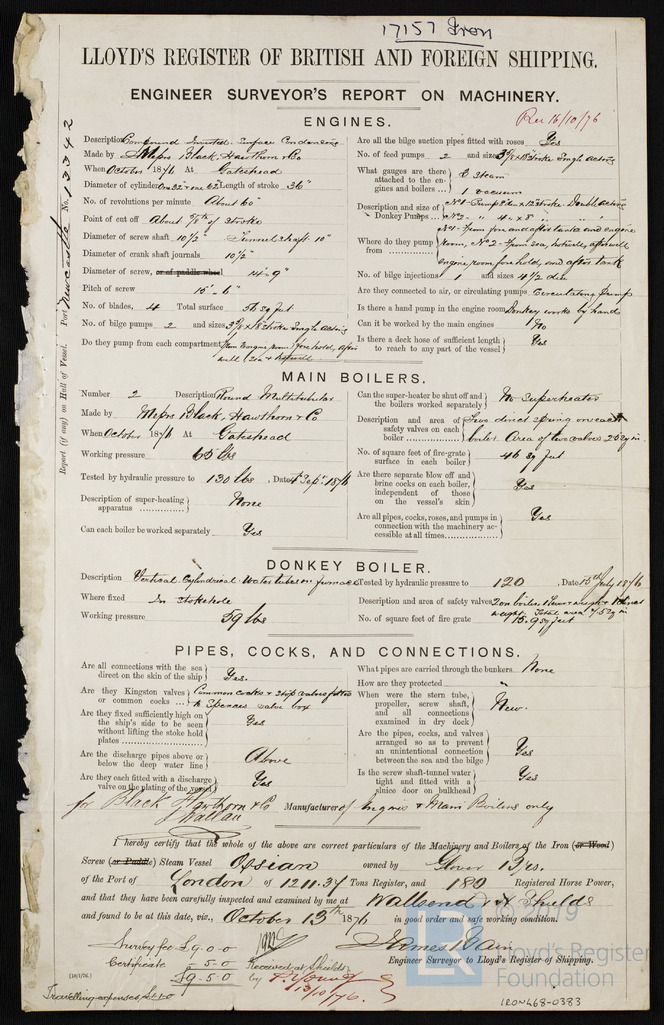 17157 Iron
LLOYD'S REGISTER OF BRITISH AND FOREIGN SHIPPING.
ENGINEER SURVEYOR'S REPORT ON MACHINERY.
Rec 16/10/76
Port Newcastle No. 13342
Report (if any) on Hull of Vessel.
ENGINES.
Description Compound Inverted Surface Condensing
Made by Messrs Black, Hawthorn & Co
When October 1876 At Gateshead
Diameter of cylinder One 32" & one 62" Length of stroke 36"
No. of revolutions per minute About 60
Point of cut off About 5/8ths of stroke
Diameter of screw shaft 10 1/2" Tunnel shaft 10"
Diameter of crank shaft journals 10 1/2"
Diameter of screw, or of paddle wheel 14'-9"
Pitch of screw 15'-6"
No. of blades, 4 Total surface 56 sq feet
No. of bilge pumps 2 and sizes 3 5/8 x 18" Stroke Single Acting
Do they pump from each compartment from Engine room, fore hold, after
well
Are all the bilge suction pipes fitted with roses Yes
No. of feed pumps 2 and sizes 3 5/8 x 18" Stroke Single Acting
What gauges are there attached to the engines and boilers ... 2 Steam
1 vacuum
Description and size of Donkey Pumps... No 1 - Pump 12" Stroke. Double Acting
No 2 - " 4" x 8" " "
Where do they pump from No 1 - from fore and after tanks and engine
room, No 2 - from sea, hotwells, after well
engine room, fore hold, and after tank
No. of bilge injections 1 and sizes 4 1/2 dia
Are they connected to air, or circulating pumps Circulating Pump
Is there a hand pump in the engine room Donkey works by hand
Can it be worked by the main engines No
Is there a deck hose of sufficient length to reach to any part of the vessel Yes
MAIN BOILERS.
Number 2 Description Round Multitubular
Made by Messrs Black, Hawthorn & Co
When October 1876 At Gateshead
Working pressure 65 lbs
Tested by hydraulic pressure to 130 lbs, Date 4 Sept 1876
Description of super-heating apparatus None
Can each boiler be worked separately Yes
Can the super-heater be shut off and the boilers worked separately No superheater
Description and area of safety valves on each boiler Two direct spring on each
boiler. Area of two valves 25 sq in.
No. of square feet of fire-grate surface in each boiler 46 sq feet
Are there separate blow off and brine cocks on each boiler, independent of those on the vessel's skin Yes
Are all pipes, cocks, roses, and pumps in connection with the machinery accessible at all times Yes
DONKEY BOILER.
Description Vertical Cylindrical Water tubes in furnace Tested by hydraulic pressure to 120, Date 15th July 1876
Where fixed In Stokehole
Description and area of safety valves 2 on boiler 1 lever & weight &
weight. Total area
Working pressure 59 lbs No. of square feet of fire grate 15.9 sq feet
PIPES, COCKS, AND CONNECTIONS.
Are all connections with the sea direct on the skin of the ship Yes.
Are they Kingston valves or common cocks Common cocks & ship valves fitted
to Spences valve box
Are they fixed sufficiently high on the ship's side to be seen without lifting the stoke hold plates Yes
Are the discharge pipes above or below the deep water line Above
Are they each fitted with a discharge valve on the plating of the vessel Yes
What pipes are carried through the bunkers None
How are they protected "
When were the stern tube, propeller, screw shaft, and all connections examined in dry dock New.
Are the pipes, cocks, and valves arranged so as to prevent an unintentional connection between the sea and the bilge Yes
Is the screw shaft-tunnel water tight and fitted with a sluice door on bulkhead Yes
for Black Hawthorn & Co Manufacturer of Engines & Main Boilers only
I hereby certify that the whole of the above are correct particulars of the Machinery and Boilers of the Iron (or Wood)
Screw (or Paddle) Steam Vessel Ossian owned by Glover Brs.
of the Port of London of 1210.37 Tons Register, and 180 Registered Horse Power,
and that they have been carefully inspected and examined by me at Wallsend & N Shields
and found to be at this date, viz., October 13th 1876 in good order and safe working condition.
Survey fee £9-0-0
Certificate 5-0
£9-5-0
Received at Shields
by P. Young
13/10/76.
James Wain
Engineer Surveyor to Lloyd's Register of Shipping.
Travelling expenses
© 2019
LR Lloyd's Register
Foundation
IRON468-0383